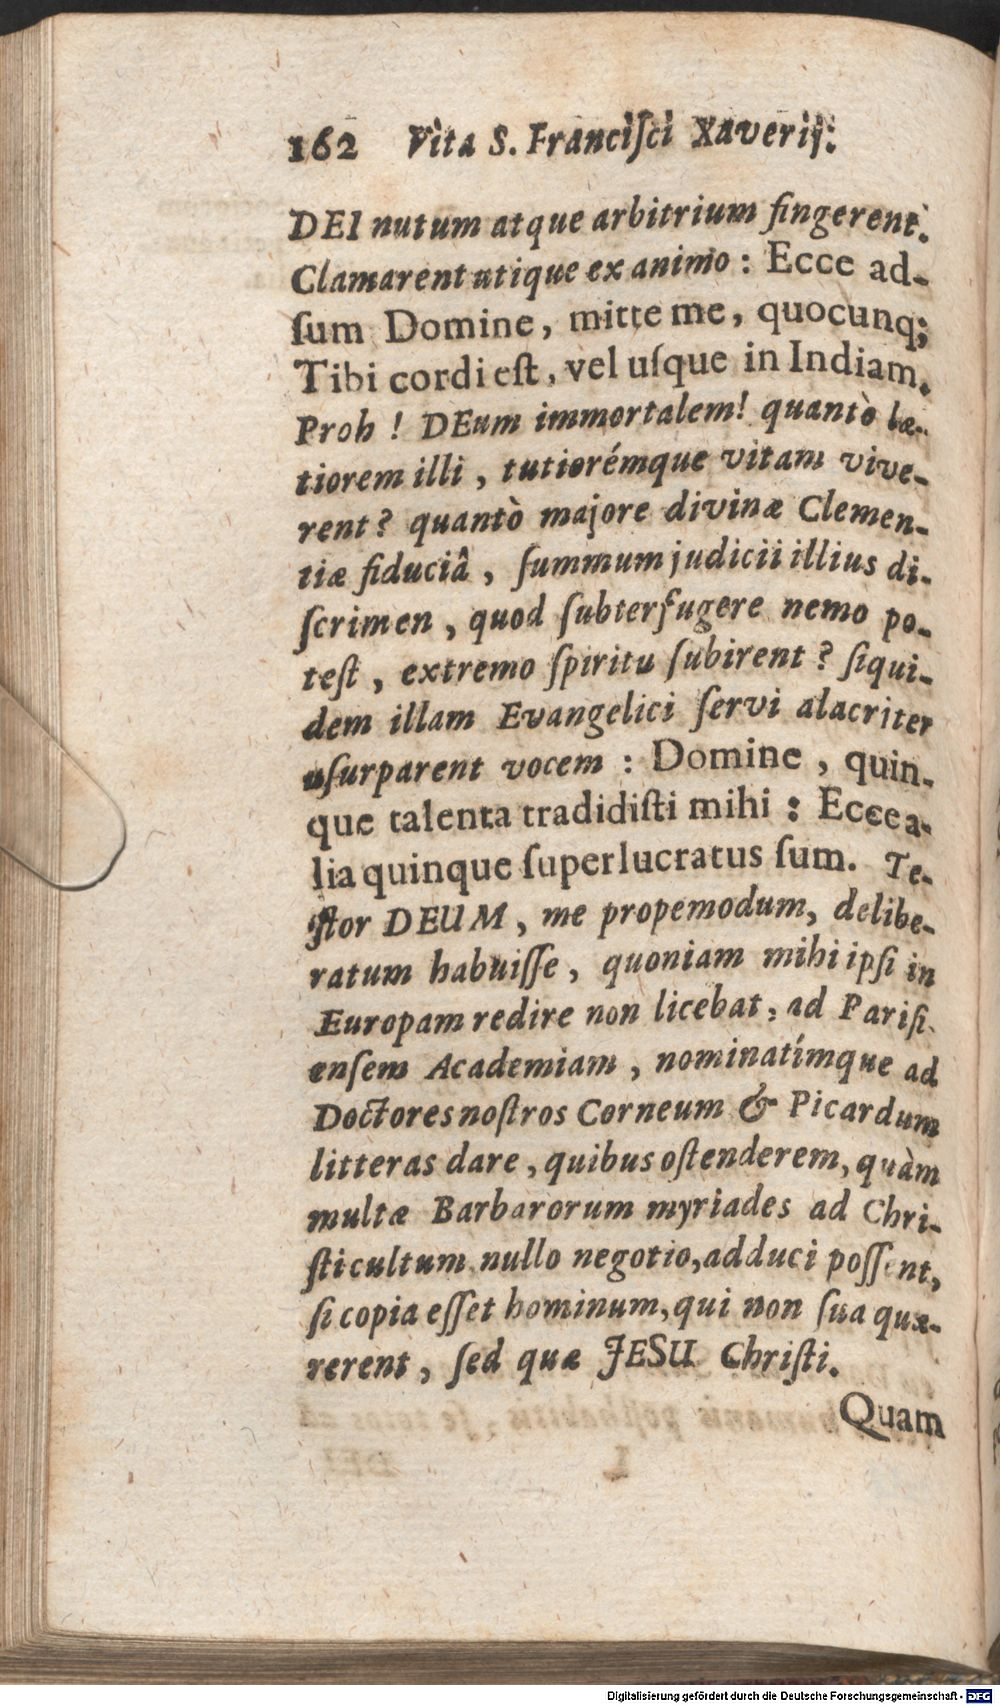 162 Vita S. Franciſci Xaverij.
DEI nutum atque arbitrium fingerent.
Clamarent utique ex animo : Ecce ad-
ſum Domine, mitte me, quocunq;
Tibi cordi eſt, vel uſque in Indiam.
Proh ! DEum immortalem! quantò læ-
tiorem illi, tutiorémque vitam vive-
rent? quantò majore divinæ Clemen-
tiæ fiduciâ, ſummum judicii illius di-
ſcrimen, quod ſubterfugere nemo po-
teſt, extremo ſpiritu ſubirent? ſiqui-
dem illam Evangelici ſervi alacriter
uſurparent vocem : Domine, quin-
que talenta tradidiſti mihi : Ecce a-
lia quinque ſuperlucratus ſum. Te-
ſtor DEUM, me propemodum, delibe-
ratum habuiſſe, quoniam mihi ipſi in
Europam redire non licebat, ad Pariſi-
enſem Academiam, nominatímque ad
Doctores noſtros Corneum & Picardum
litteras dare, quibus oſtenderem, quàm
multæ Barbarorum myriades ad Chri-
ſti cultum nullo negotio, adduci poſſent,
ſi copia eſſet hominum, qui non ſua quæ-
rerent, ſed quæ JESU Chriſti.
Quam
Digitalisierung gefördert durch die Deutsche Forschungsgemeinschaft - DFG